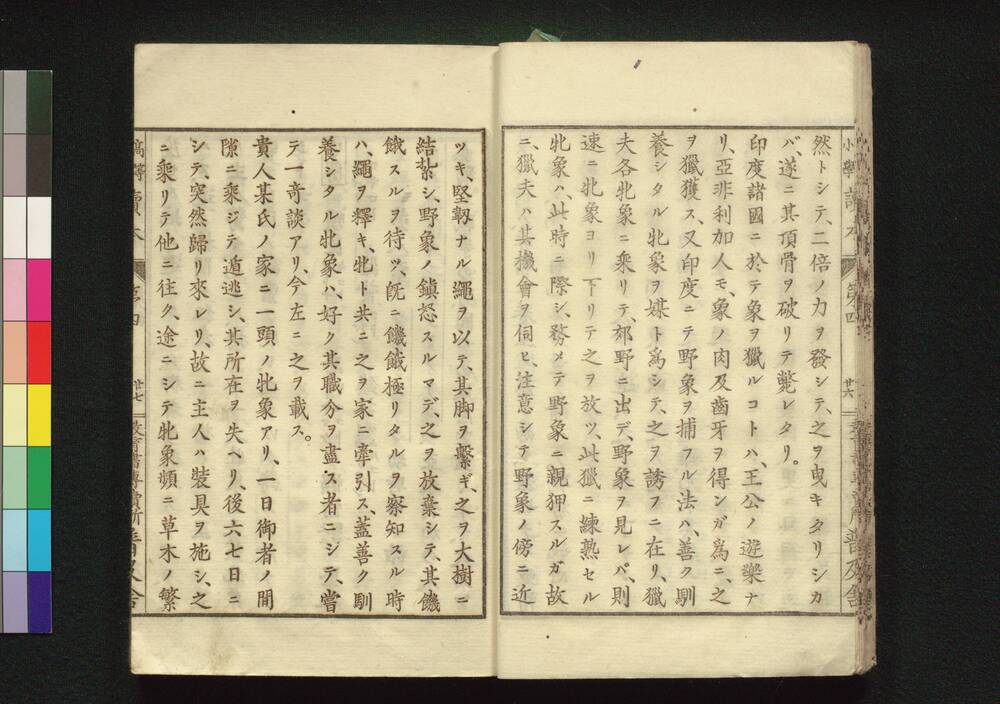 然トシテ、二倍ノ力ヲ發シテ、之ヲ曳キタリシカ
バ、遂ニ其頂骨ヲ破リテ斃レタリ。
印度諸國ニ於テ象ヲ獵ルコトハ、王公ノ遊樂ナ
リ、亞非利加人モ、象ノ肉及齒牙ヲ得ンガ爲ニ、之
ヲ獵獲ス、又印度ニテ野象ヲ捕フル法ハ、善ク馴
養シタル牝象ヲ媒ト爲シテ、之ヲ誘フニ在リ、獵
夫各牝象ニ乘リテ、郊野ニ出デ、野象ヲ見レバ、則
速ニ牝象ヨリ下リテ之ヲ放ツ、此獵ニ練熟セル
牝象ハ、此時ニ際シ、務メテ野象ニ親狎スルガ故
ニ、獵夫ハ其機會ヲ伺ヒ、注意シテ野象ノ傍ニ近
ツキ、堅靱ナル繩ヲ以テ、其脚ヲ繫ギ、之ヲ大樹ニ
結紮シ、野象ノ鎭怒スルマデ、之ヲ放棄シテ、其饑
餓スルヲ待ツ、旣ニ饑餓極リタルヲ察知スル時
ハ、繩ヲ釋キ、牝ト共ニ之ヲ家ニ牽引ス、蓋善ク馴
養シタル牝象ハ、好ク其職分ヲ盡ス者ニシテ、嘗
テ一奇談アリ、今左ニ之ヲ載ス。
貴人某氏ノ家ニ一頭ノ牝象アリ、一日御者ノ間
隙ニ乘ジテ遁逃シ、其所在ヲ失ヘリ、後六七日ニ
シテ、突然歸リ來レリ、故ニ主人ハ裝具ヲ施シ、之
ニ乘リテ他ニ往ク、途ニシテ牝象頻ニ草木ノ繁